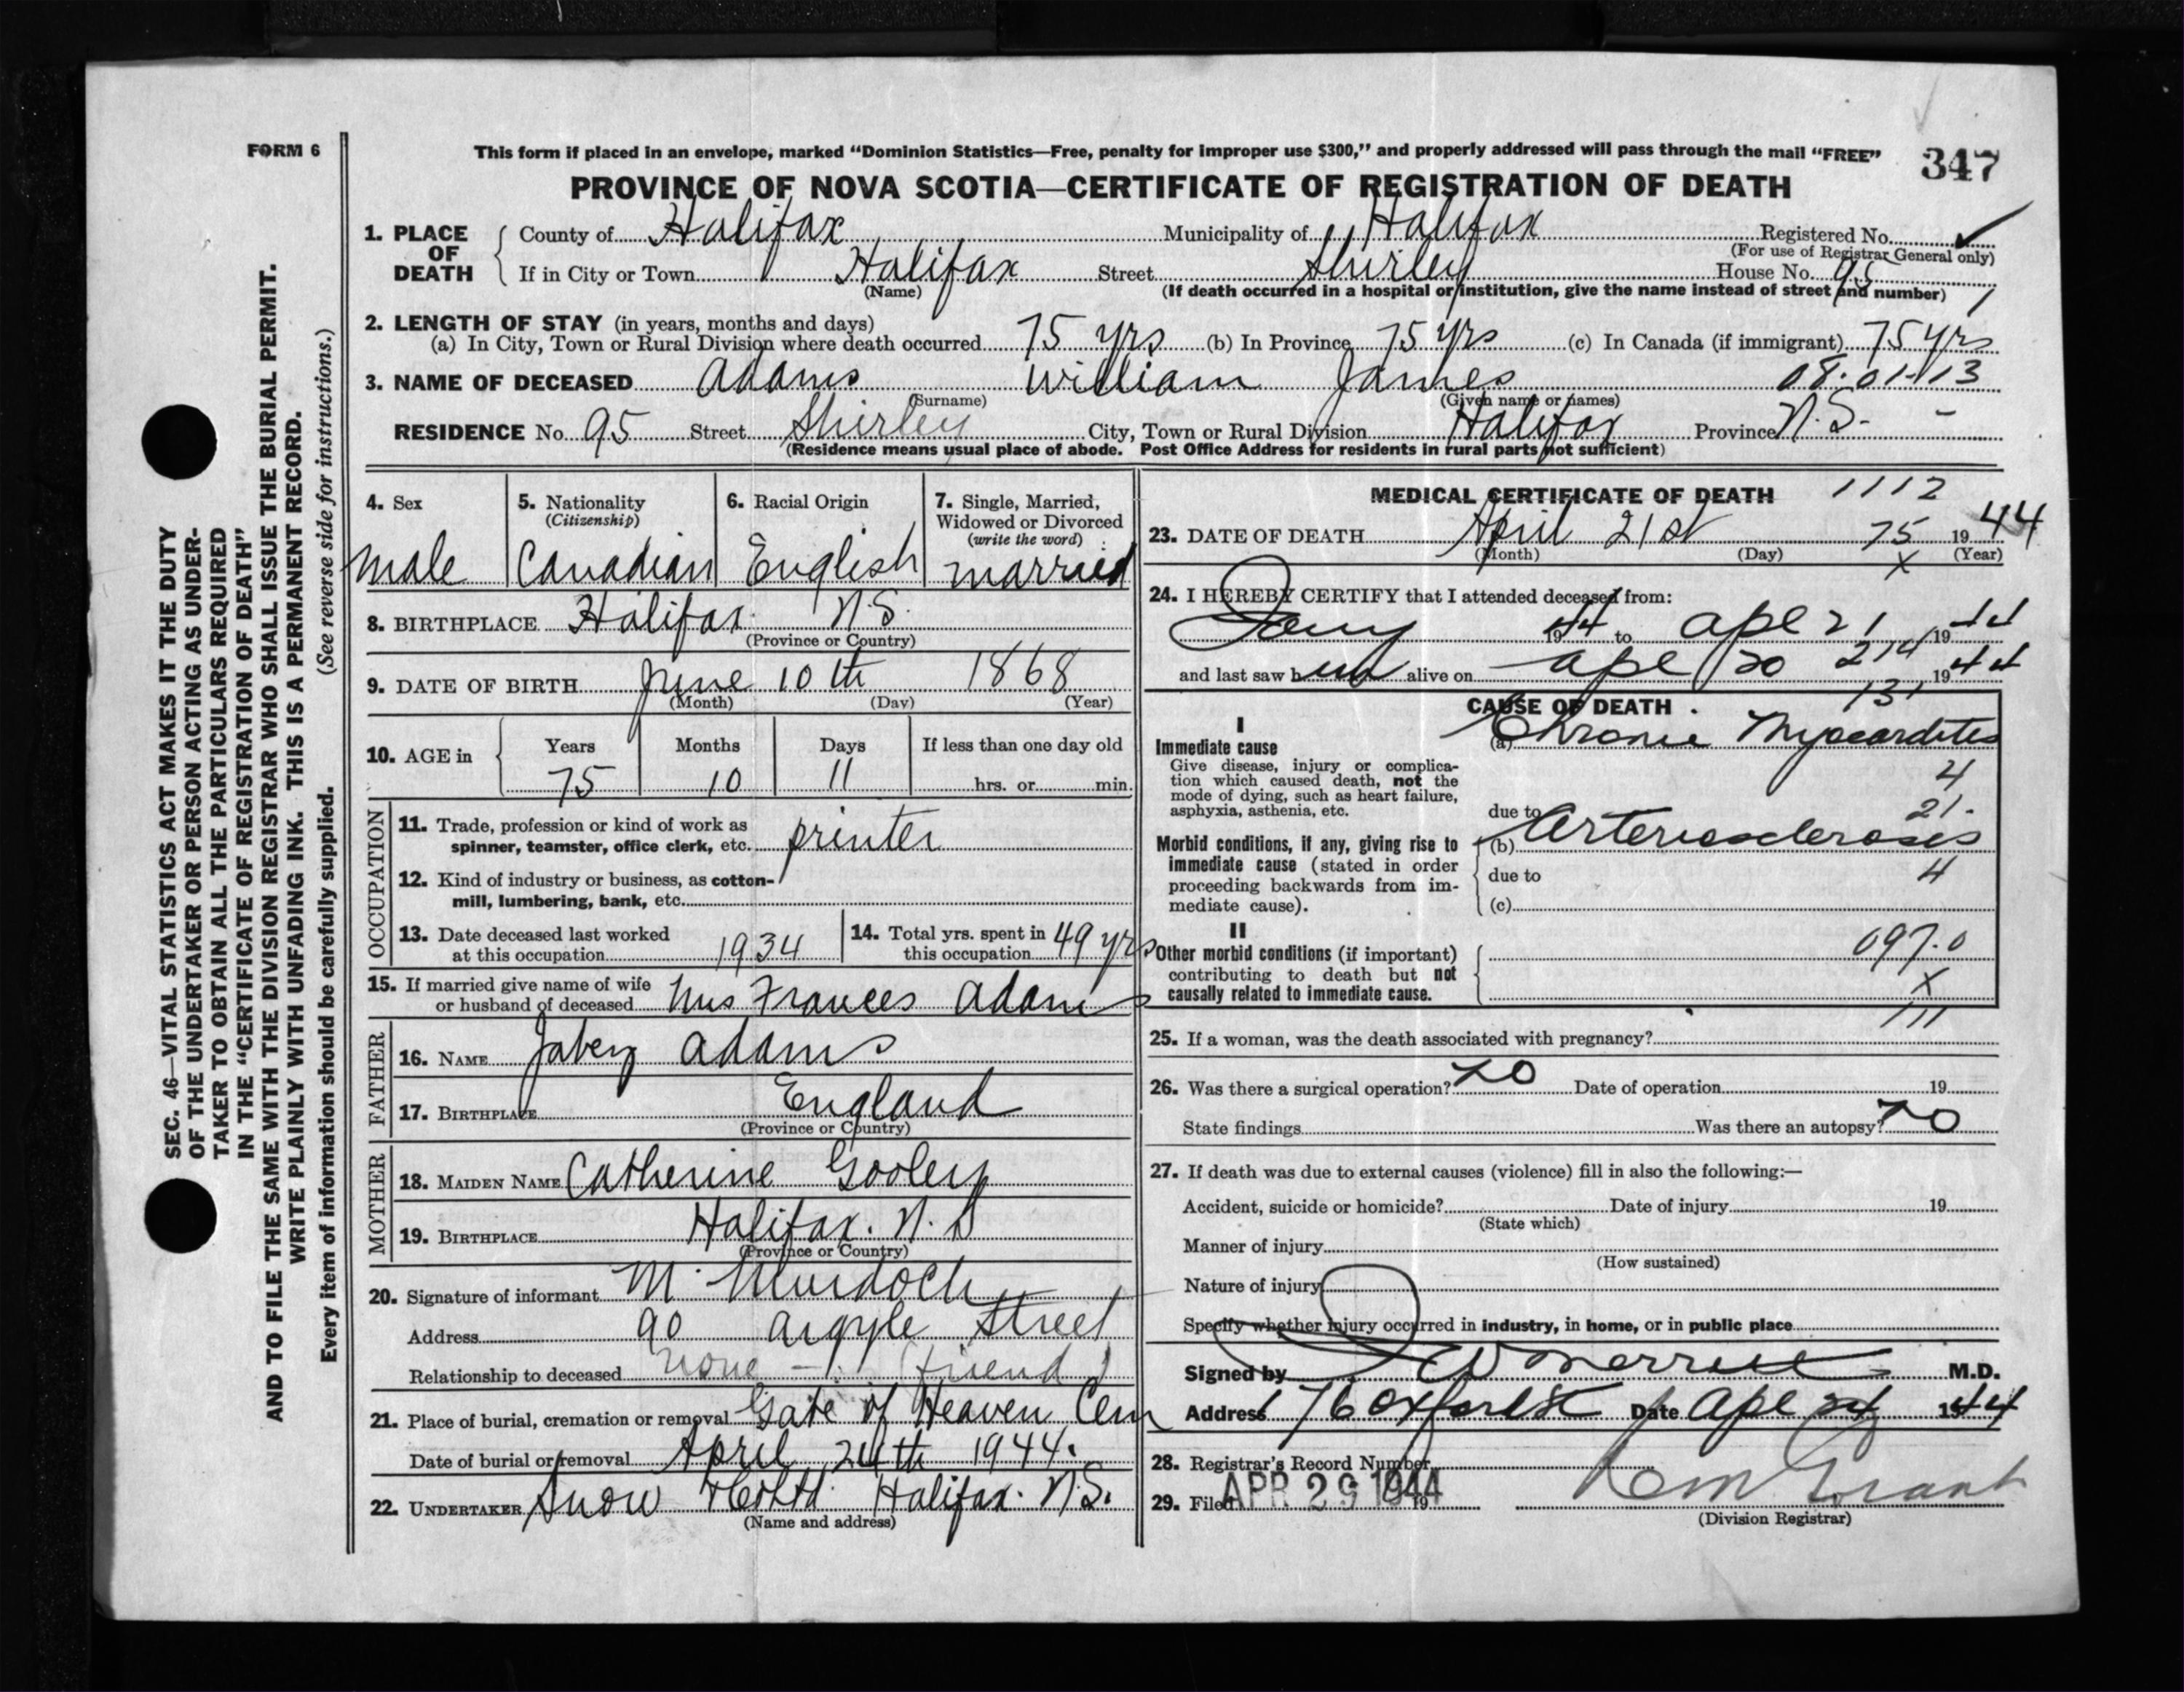 FORM 6
This form if placed in an envelope, marked “Dominion Statistics—Free, penalty for improper use $300,” and properly addressed will pass through the mail “FREE”
347
PROVINCE OF NOVA SCOTIA—CERTIFICATE OF REGISTRATION OF DEATH
1. PLACE OF DEATH
County of Halifax Municipality of Halifax Registered No.
(For use of Registrar General only)
If in City or Town Halifax Street Shirley House No. 95
(Name) (If death occurred in a hospital or institution, give the name instead of street and number) 1
2. LENGTH OF STAY (in years, months and days)
(a) In City, Town or Rural Division where death occurred 75 yrs (b) In Province 75 yrs (c) In Canada (if immigrant) 75 yrs
3. NAME OF DECEASED Adams William James 08.01.13
(Surname) (Given name or names)
RESIDENCE No. 95 Street Shirley City, Town or Rural Division Halifax Province N.S. -
(Residence means usual place of abode. Post Office Address for residents in rural parts not sufficient)
4. Sex
male
5. Nationality
(Citizenship)
Canadian
6. Racial Origin
English
7. Single, Married,
Widowed or Divorced
(write the word)
married
8. BIRTHPLACE Halifax N.S.
(Province or Country)
9. DATE OF BIRTH June 10th 1868
(Month) (Day) (Year)
10. AGE in
Years Months Days If less than one day old
75 10 11 hrs. or min.
OCCUPATION
11. Trade, profession or kind of work as
spinner, teamster, office clerk, etc. printer
12. Kind of industry or business, as cotton-
mill, lumbering, bank, etc.
13. Date deceased last worked
at this occupation 1934
14. Total yrs. spent in
this occupation 49 yrs
15. If married give name of wife
or husband of deceased Mrs Frances Adams
FATHER
16. NAME Jabez Adams
17. BIRTHPLACE England
(Province or Country)
MOTHER
18. MAIDEN NAME Catherine Gooley
19. BIRTHPLACE Halifax. N.S
(Province or Country)
20. Signature of informant M. Murdoch
Address 90 Argyle Street
Relationship to deceased none - (friend)
21. Place of burial, cremation or removal Gate of Heaven Cem
Date of burial or removal April 24th 1944.
22. UNDERTAKER Snow & Co Ltd. Halifax. N.S.
(Name and address)
MEDICAL CERTIFICATE OF DEATH 1112
23. DATE OF DEATH April 21st 75 1944
(Month) (Day) X (Year)
24. I HEREBY CERTIFY that I attended deceased from:
1944 to Apl 21 1944
214
and last saw h alive on Apl 20 1944
131
CAUSE OF DEATH
I
Immediate cause
Give disease, injury or complica-
tion which caused death, not the
mode of dying, such as heart failure,
asphyxia, asthenia, etc.
(a) Chronic Myocarditis
4
21.
due to
Morbid conditions, if any, giving rise to
immediate cause (stated in order
proceeding backwards from im-
mediate cause).
(b) Arteriosclerosis
due to 4
(c)
II
Other morbid conditions (if important)
contributing to death but not
causally related to immediate cause.
097.0
X
111
25. If a woman, was the death associated with pregnancy?
26. Was there a surgical operation? no Date of operation 19
State findings Was there an autopsy? no
27. If death was due to external causes (violence) fill in also the following:—
Accident, suicide or homicide? Date of injury 19
(State which)
Manner of injury
(How sustained)
Nature of injury
Specify whether injury occurred in industry, in home, or in public place
Signed by M.D.
Address 176 Oxford St Date Apl 24 1944
28. Registrar's Record Number
29. Filed APR 29 1944 19
(Division Registrar)
SEC. 46—VITAL STATISTICS ACT MAKES IT THE DUTY
OF THE UNDERTAKER OR PERSON ACTING AS UNDER-
TAKER TO OBTAIN ALL THE PARTICULARS REQUIRED
IN THE “CERTIFICATE OF REGISTRATION OF DEATH”
AND TO FILE THE SAME WITH THE DIVISION REGISTRAR WHO SHALL ISSUE THE BURIAL PERMIT.
WRITE PLAINLY WITH UNFADING INK. THIS IS A PERMANENT RECORD.
Every item of information should be carefully supplied. (See reverse side for instructions.)